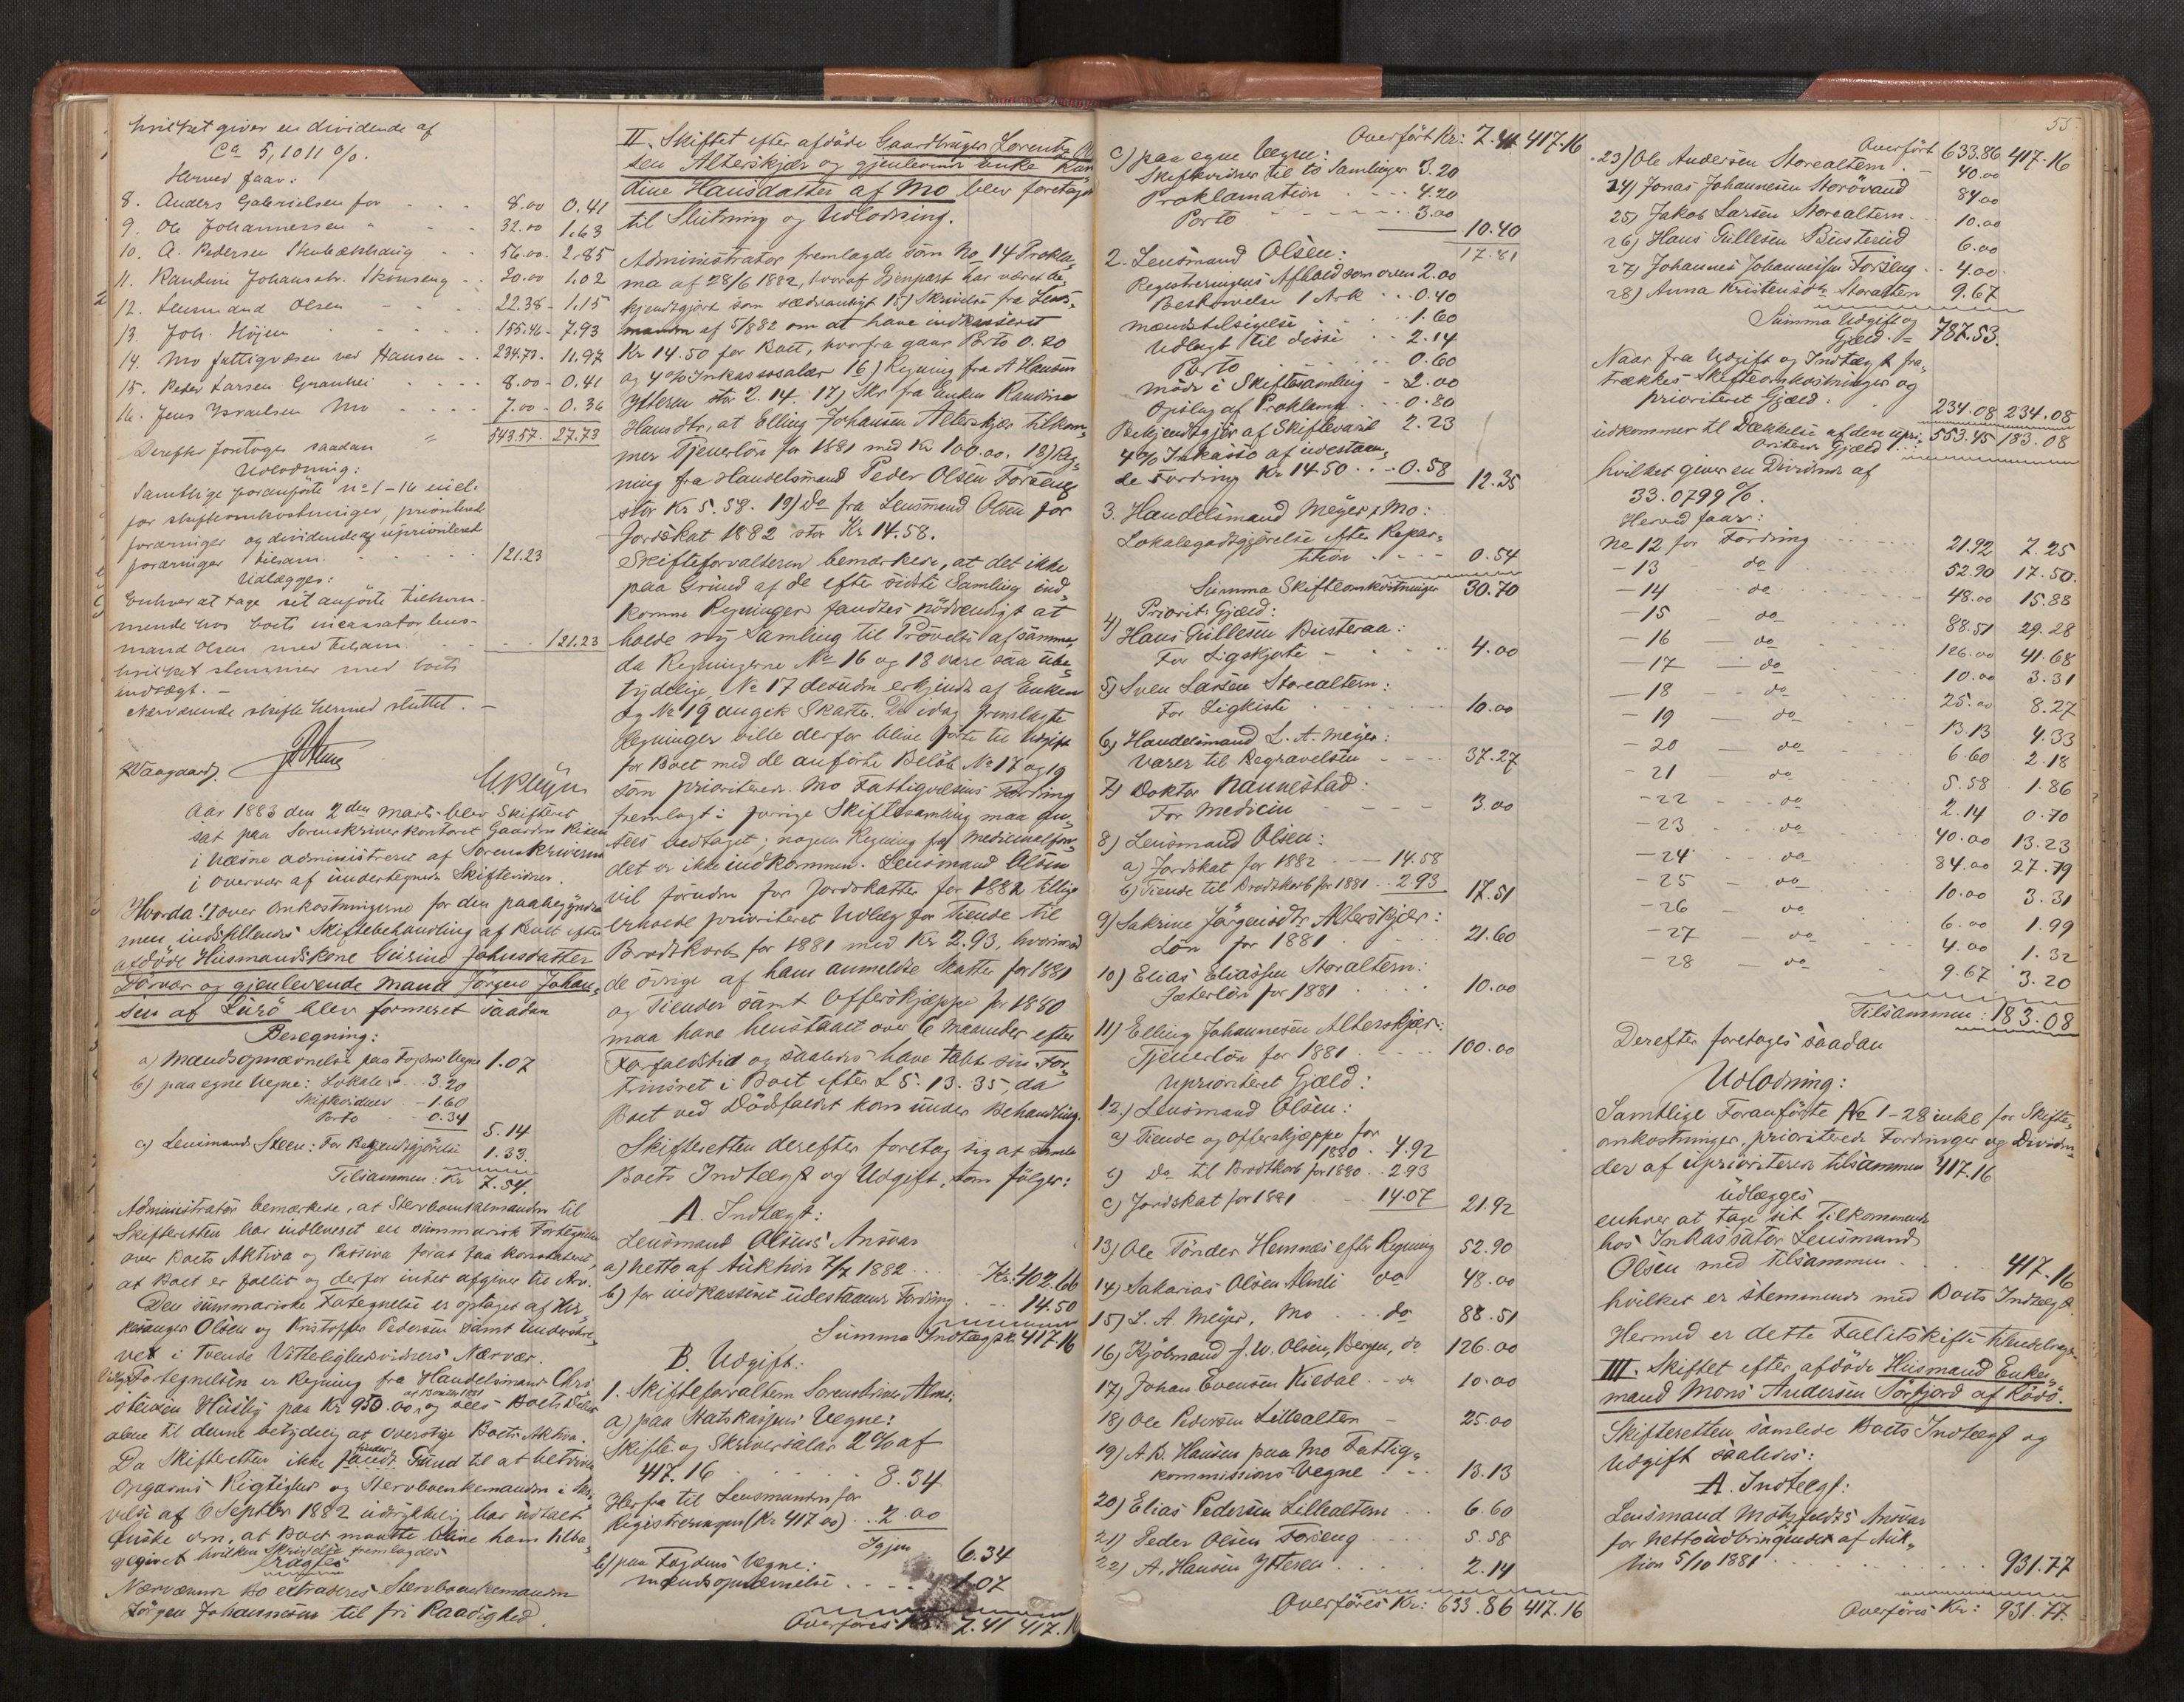 hvilket giver en dividende af
Ca 5,1011 %.
Herved faar:
8. Anders Gabrielsen for 8.00 0.41
9. Ole Johannessen " 32.00 1.63
10. A. Pedersen 56.00 - 2.85
11. Randine Johansdtr. Skonseng 20.00 1.02
12. Lensmand Olsen 22.38 - 1.15
13. Joh. Højen 155.46 - 7.93
14. Mo fattigvæsen ved Hansen 234.73 - 11.97
15. Peder Larsen Granhei 8.00 - 0.41
16. Jens Israelsen Mo 7.00 - 0.36
543.57 - 27.73
Derefter foretoges saadan
Udlodning:
Samtlige foranførte no 1-16 incl.
for skifteomkostninger, prioriterede
fordringer og dividende af uprioriterede
fordringer tilsam. 121.23
Udlægges:
Enhver at tage sit anførte tilkom-
mende hos boets incassator lens-
mand Olsen med tilsam 121.23
hvilket stemmer med boets
indtægt. -
Nærværende skifte hermed sluttet. -
Aar 1883 den 2den Marts blev Skifteret
sat paa Sorenskriverkontoret Gaarden
i Næsne administreret af Sorenskriveren
i overvær af undertegnede Skiftevidner.
Hvorda: I over omkostningerne for den paabegyndte
men indstillende Skiftebehandling af Boet efter
afdøde Husmandskone Gurine Johnsdatter
Torvær og gjenlevende Mand Jørgen Johan-
sen af Lurø blev formeret saadan
Beregning:
a) Mandsopnævnelse paa Fogdens Vegne 1.07
b) paa egne Vegne: Lokale 3.20
Skiftevidner - 1.60
Porto - 0.34 5.14
c) Lensmand Steen: For Bekjendtgjørelse 1.33.
Tilsammen: Kr 7.54.
Administrator bemærkede, at Stervboenkemanden til
Skifteretten har indleveret en summarisk Fortegnelse
over Boets Aktiva og Passiva forat faa konstateret,
at Boet er fallit og derfor intet afgiver til Arv.
Den summariske Fortegnelse er optaget af
Olsen og Kristoffer Pedersen samt underskre-
vet i tvende Vitterlighedsvidners Nærvær.
Fortegnelsen er Regning fra Handelsmand Chri
stensen Husby paa Kr 950.00 og sees Boets Gjæld
alene til denne betydelig at overstige Boets Aktiva.
Da Skifteretten ikke finder Grund til at betvivle
Opgavens Rigtighed og Stervboenkemanden i Skri-
velse af 6 Septbr 1882 udtrykkelig har udtalt
Ønske om, at Boet maatte blive ham tilba-
gegivet hvilken Skrivelse fremlagdes
Nærværende Bo extraderes Stervboenkemanden
Jørgen Johannesen til fri Raadighed.
II. Skiftet efter afdøde Gaardbruger Lorentz Ol
sen Alterskjær og gjenlevende Enke Ran
dine Hansdatter af Mo blev foretaget
til Slutning og Udlodning.
Administrator fremlagde som No 14 Prokla-
ma af 28/6 1882, hvoraf Gjenpart har været be-
kjendtgjort som sædvanligt 15) Skrivelse fra Lens-
manden af 5/882 om at have indkasseret
Kr 14.50 for Boet, hvorfra gaar Porto 0.20
og 4% Inkassosalær 16) Regning fra A Hansen
Ytteren stor 2.14. 17) Skr. fra Enken Randine
Hansdtr, at Elling Johansen Alterskjær tilkom-
mer Tjenerløn for 1881 med Kr 100.00. 18) Reg-
ning fra Handelsmand Peder Olsen Forseng
stor Kr 5.58. 19) Do fra Lensmand Olsen for
Jordskat 1882 stor Kr 14.58.
Skifteforvalteren bemærkede, at det ikke
paa Grund af de efter sidste Samling ind-
komne Regninger fandtes nødvendigt at
holde ny Samling til Prøvelse af samme,
da Regningerne No 16 og 18 vare saa ube-
tydelige, No 17 desuden erkjendt af Enken
og No 19 angik Skatter. De idag fremlagte
Regninger ville derfor blive førte til Udgift
for Boet med de anførte Beløb No 17 og 19
som prioriterede. Mo Fattigvæsens Fordring
fremlagt i forrige Skiftesamling maa an-
sees vedtaget; nogen Regning for Medicinalfon-
det er ikke indkommen. Lensmand Olsen
vil foruden for Jordskatter for 1882 tillige
erholde prioriteret Udlæg for Tiende til
Brodtkorb for 1881 med Kr 2.93, hvorimod
de øvrige af ham anmeldte Skatter for 1881
og Tiender samt Offerskjæppe for 1880
maa have henstaaet over 6 Maaneder efter
Forfaldstid og saaledes have tabt sin For-
trinsret i Boet efter L 5.-13.-35, da
Boet ved Dødsfaldet kom under Behandling.
Skifteretten derefter foretog sig at samle
Boets Indtægt og Udgift, som følger:
A. Indtægt:
Lensmand Olsens Ansvar
a) Netto af Auktion 7/7 1882 Kr: 402.66
b) for indkasseret udestaaende Fordring 14.50
Summa Indtægt Kr. 417.16
B. Udgift:
1. Skifteforvalteren Sorenskriver
a) paa Statskassens Vegne:
Skifte og Skriversalær 2% af
417.16 8.34
Herfra til Lensmanden for
Registreringen (Kr 417.00) 2.00
Igjen 6.34
b) paa Fogdens Vegne:
Mandsopnævnelse 1.07
Overføres Kr: 7.41 417.16
Overført Kr: 7.41 417.16
c) paa egne Vegne:
Skiftevidner til to Samlinger 3.20
Proklamation 4.20
Porto 3.00 10.40
17.81
2. Lensmand Olsen:
Registreringens Afhold som oven 2.00
Beskrivelse 1 Ark 0.40
Mandstilsigelse 1.60
Udlagt til disse 2.14
Porto 0.60
Møde i Skiftesamling - 2.00
Opslag af Proklama 0.80
Bekjendtgjør af Skiftevarsel 2.23
4% Inkasso af udestaaen-
de Fordring Kr 14.50 0.58 12.35
3. Handelsmand Meyer, Mo:
Lokalegodtgjørelse efter Repar-
tition 0.54
Summa Skifteomkostninger 30.70
Priorit. Gjæld:
4) Hans Gullesen Busteraa:
For Ligskjorte 4.00
5) Sven Larsen Storealtern:
For Ligkiste 10.00
6) Handelsmand L. A. Meyer:
Varer til Begravelsen 37.27
7) Doktor Nannestad:
For Medicin 3.00
8) Lensmand Olsen:
a) Jordskat for 1882 14.58
b) Tiende til Brodtkorb for 1881 2.93 17.51
9) Sakrine Jørgensdtr Alterskjær:
Løn for 1881 21.60
10) Elias Eliassen Storaltern:
Gjæterløn for 1881 10.00
11) Elling Johannesen Alterskjær:
Tjenerløn for 1881 100.00
Uprioriteret Gjæld:
12.) Lensmand Olsen:
a) Tiende og Offerskjæppe for
1880 4.92
b) Do til Brodtkorb for 1880 2.93
c) Jordskat for 1881 14.07 21.92
13) Ole Tønder Hemnes efter Regning 52.90
14) Sakarias Olsen do 48.00
15) L. A. Meyer, Mo do 88.51
16) Kjøbmand J. W. Olsen, Bergen, do 126.00
17) Johan Evensen Kildal do 10.00
18) Ole Pedersen Lillealtern 25.00
19) A. B. Hansen paa Mo Fattig-
kommissions Vegne 13.13
20) Elias Pedersen Lillealtern 6.60
21) Peder Olsen Forseng 5.58
22) A. Hansen Ytteren 2.14
Overføres Kr: 633.86 417.16
55
Overført 633.86 417.16
23) Ole Andersen Storealtern 40.00
24) Jonas Johannesen Storøvand 84.00
25) Jakob Larsen Storealtern 10.00
26) Hans Gullesen Busterud 6.00
27) Johannes Johannessen Forseng 4.00
28) Anna Kristensdtr Storaltern 9.67
Summa Udgift og
Gjæld = 787.53.
Naar fra Udgift og Indtægt fra-
trækkes Skifteomkostninger og
prioriteret Gjæld 234.08 234.08
udkommer til Dækkelse af den upri- 553.45 183.08
oriterede Gjæld
hvilket giver en Dividende af
33.0799 %.
Herved faar:
No 12 for Fordring 21.92 7.25
- 13 do 52.90 17.50.
- 14 - do 48.00 15.88
- 15 - do 88.51 29.28
- 16 - do 126.00 41.68
- 17 - do 10.00 3.31
- 18 - do 25.00 8.27
- 19 - do 13.13 4.33
- 20 - do 6.60 2.18
- 21 - do 5.58 1.86
- 22 - do 2.14 0.70
- 23 - do 40.00 13.23
- 24 - do 84.00 27.79
- 25 - do 10.00 3.31
- 26 - do 6.00 1.99
- 27 - do 4.00 1.32
- 28 - do 9.67 3.20
Tilsammen: 183.08
Derefter foretoges saadan
Udlodning:
Samtlige Foranførte No 1-28 inkl for Skifte-
omkostninger, prioriterede Fordringer og Dividen-
der af uprioriterede tilsammen 417.16
udlægges
enhver at tage sit Tilkommende
hos Inkassator Lensmand
Olsen med tilsammen 417.16
hvilket er stemmende med Boets Indtægt.
Hermed er dette Fallitskifte tilendebragt.
III. Skiftet efter afdøde Husmand Enke-
mand Mons Andersen Sørfjord af Rødø.
Skifteretten samlede Boets Indtægt og
Udgift saaledes:
A. Indtægt:
Lensmand Motzfeldts Ansvar
for Nettoudbringendet af Auk-
tion 5/10 1881 931.77
Overføres Kr: 931.77.